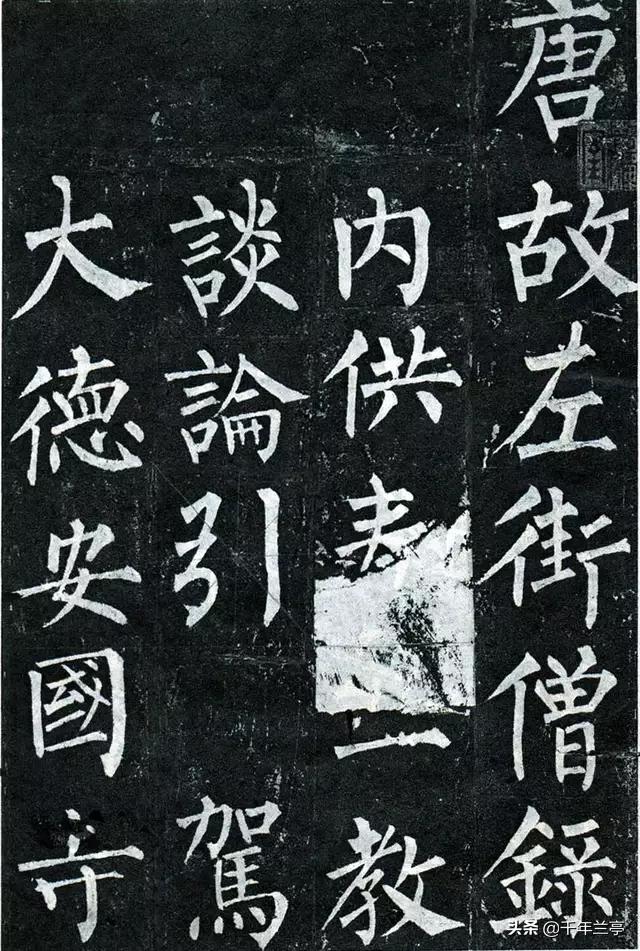 唐故左街僧錄
内供教
談論引駕
大德安國寺
头条 @千年兰亭